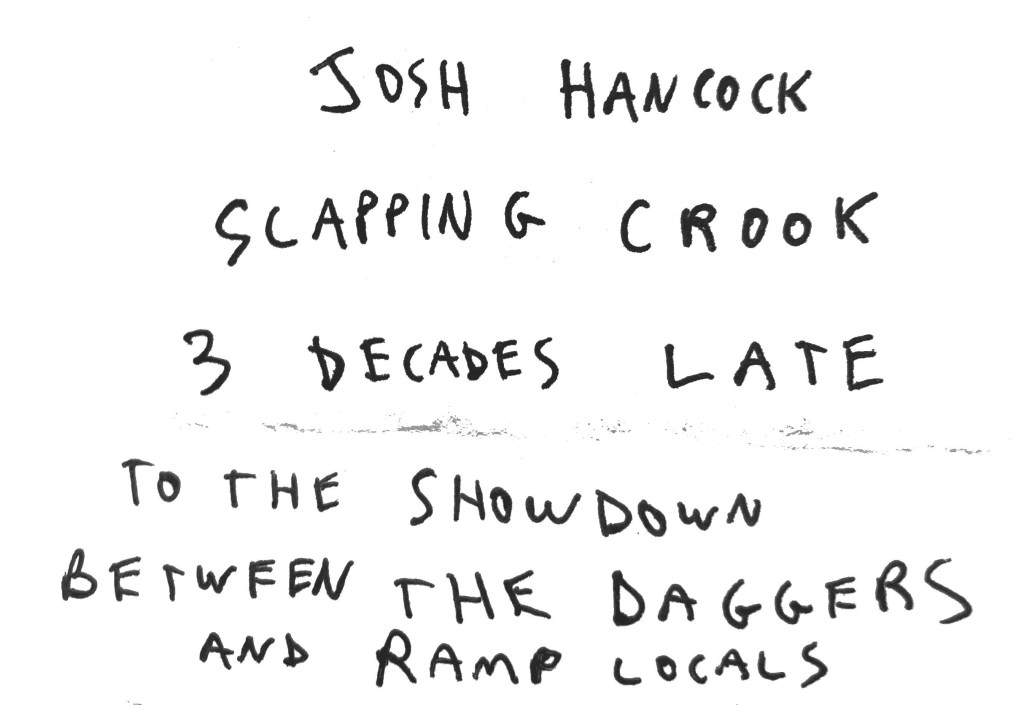 JOSH HANCOCK
SLAPPING CROOK
3 DECADES LATE
TO THE SHOWDOWN
BETWEEN THE DAGGERS
AND RAMP LOCALS